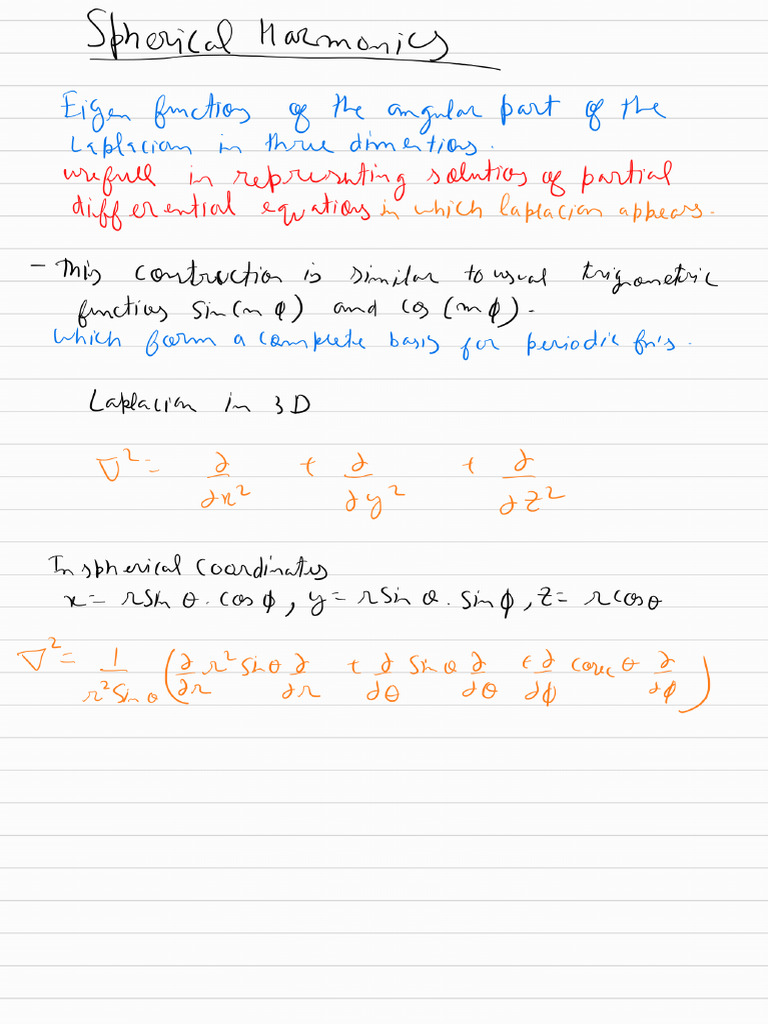 Spherical Harmonics
Eigen functions of the angular part of the
Laplacian in three dimentions.
usefull in representing solutions of partial
differential equations in which laplacian appears.
- This construction is similar to usual trignometric
functions sin(mϕ) and cos(mϕ).
which form a complete basis for periodic fn's.
Laplacian in 3D
∇² = ∂/∂x² + ∂/∂y² + ∂/∂z²
In spherical coordinates
x = r sin θ . cos ϕ, y = r sin θ . sin ϕ, z = r cos θ
∇² = 1/(r² sin θ) (∂/∂r r² sin θ ∂/∂r + ∂/∂θ sin θ ∂/∂θ + ∂/∂ϕ cosec θ ∂/∂ϕ)